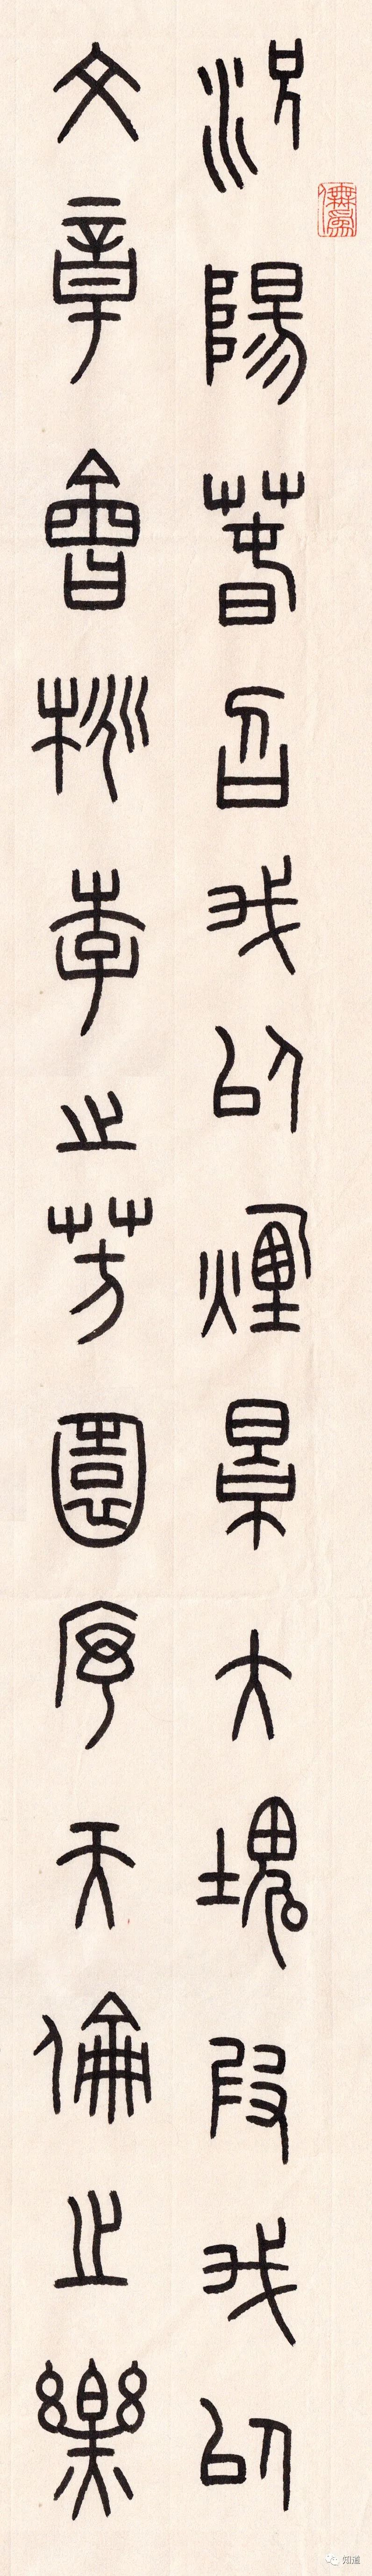 況陽春召我以煙景大塊叚我以
文章會桃李之芳園序天倫之樂
知道